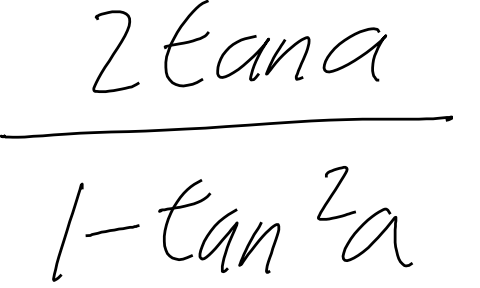 2tana
1-tan²a